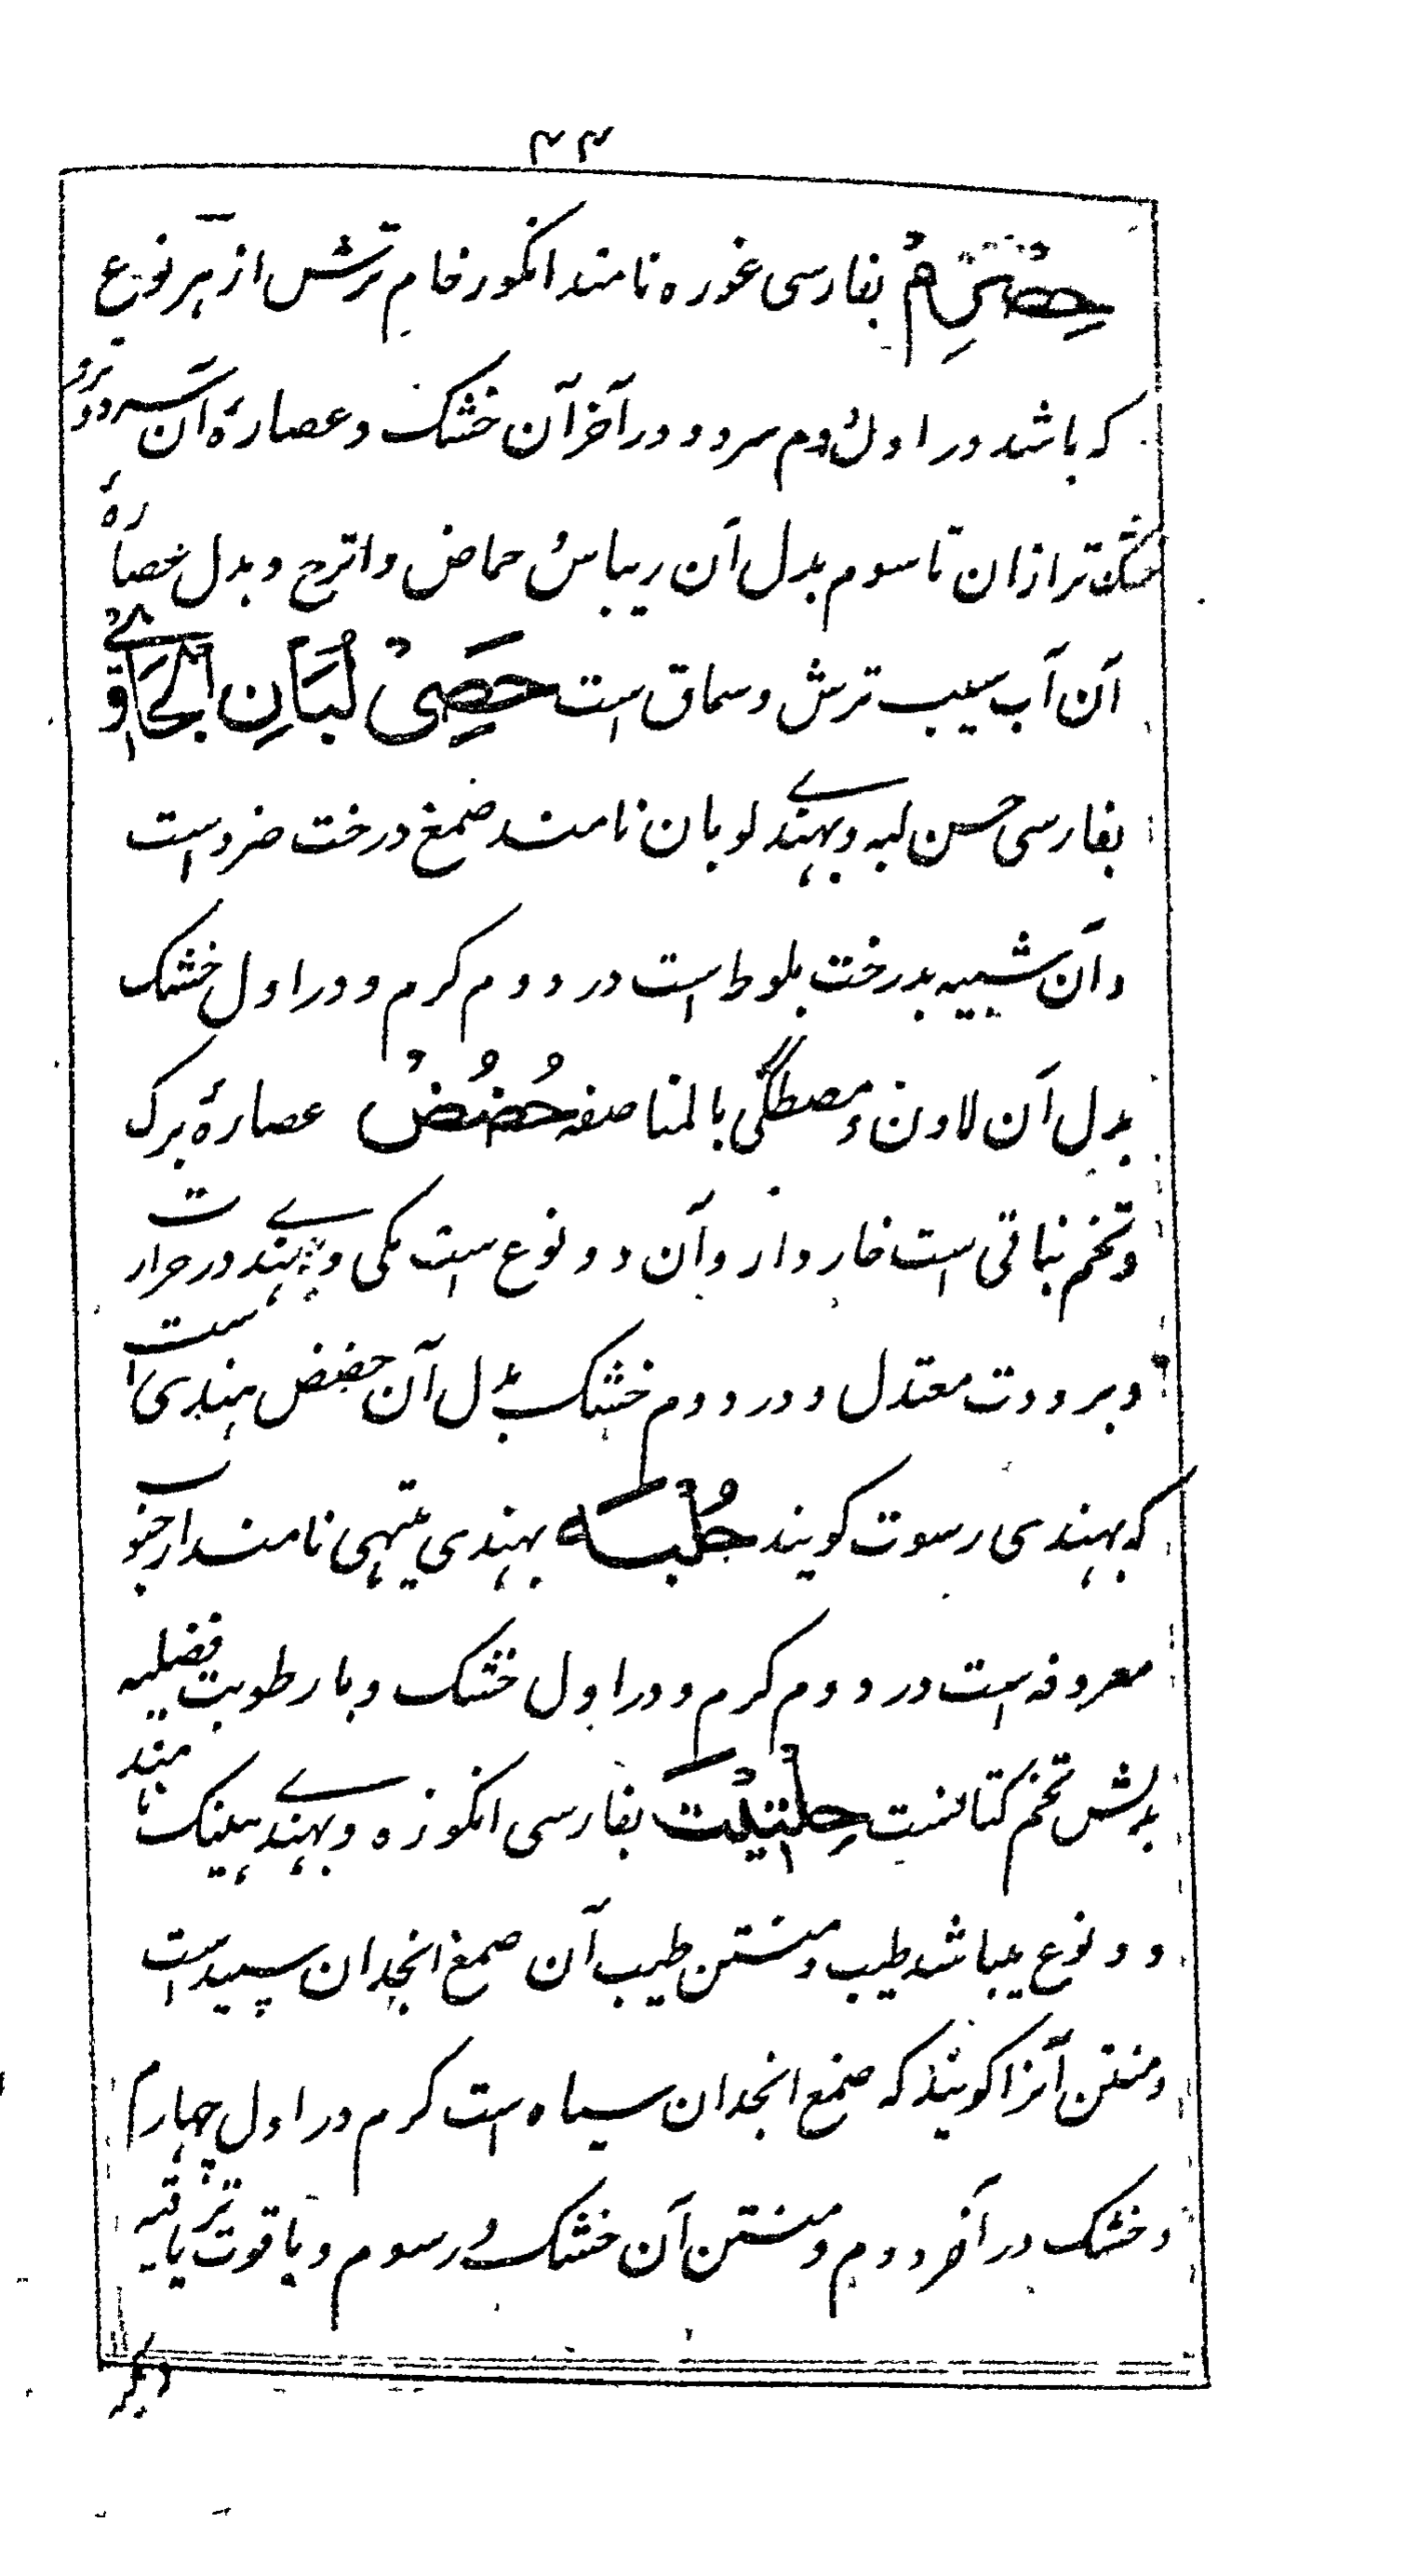 ۴۴
حِصْرِمْ بفارسی غوره نامند انکور خام ترش از هر نوع
که باشد در اول دوم سرد و در آخر آن خشک و عصارۀ آن سرد و تر و
خشک تر ازان تا سوم بدل آن ریباس حماض و اترج و بدل عصارۀ
آن آب سیب ترش و سماق است حَصِیْ لُبَانِ الْجَاوِے
بفارسی حسن لبه و بهندے لوبان نامند صمغ درخت ضرو است
و آن شبیه بدرخت بلوط است در دوم کرم و در اول خشک
بدل آن لادن و مصطگی بالمناصفه حُضُضْ عصارۀ برک
و تخم نباتی است خار دار و آن دو نوع است مکی و ہندے در حرارت
و برودت معتدل و در دوم خشک بدل آن حضض ہندی است
که بهندی رسوت کویند حُلْبَه بهندی میتهی نامند از حبوب
معروفه است در دوم کرم و در اول خشک و با رطوبت فضلیه
بدلش تخم کتانست حِلْتِیْتَ بفارسی انکوزه و بهندے ہینک نامند
و دو نوع میباشد طیب و منتن طیب آن صمغ انجدان سپید است
و منتن آنرا کویند که صمغ انجدان سیاه است کرم در اول چہارم
و خشک در آخر دوم و منتن آن خشک در سوم و با قوت تریاقیه
دیگر